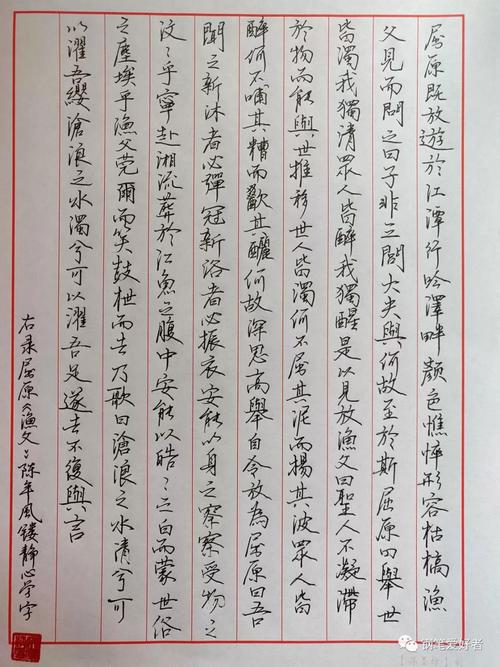 屈原既放遊於江潭行吟澤畔顏色憔悴形容枯槁漁
父見而問之曰子非三閭大夫與何故至於斯屈原曰舉世
皆濁我獨清眾人皆醉我獨醒是以見放漁父曰聖人不凝滯
於物而能與世推移世人皆濁何不屈其泥而揚其波眾人皆
醉何不哺其糟而歠其釃何故深思高舉自令放為屈原曰吾
聞之新沐者必彈冠新浴者必振衣安能以身之察察受物之
汶〻乎寧赴湘流葬於江魚之腹中安能以皓〻之白而蒙世俗
之塵埃乎漁父莞爾而笑鼓枻而去乃歌曰滄浪之水清兮可
以濯吾纓滄浪之水濁兮可以濯吾足遂去不復與言
右录屈原《漁父》陈年風镂静心学字
钢笔爱好者